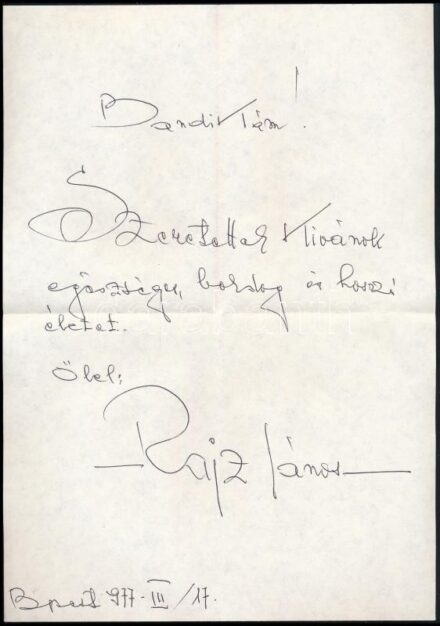 Bandikám!
Szeretettel kivánok
egészséges, boldog és hosszú
életet.
Ölel:
Rajz János
Bpest 977. III/17.